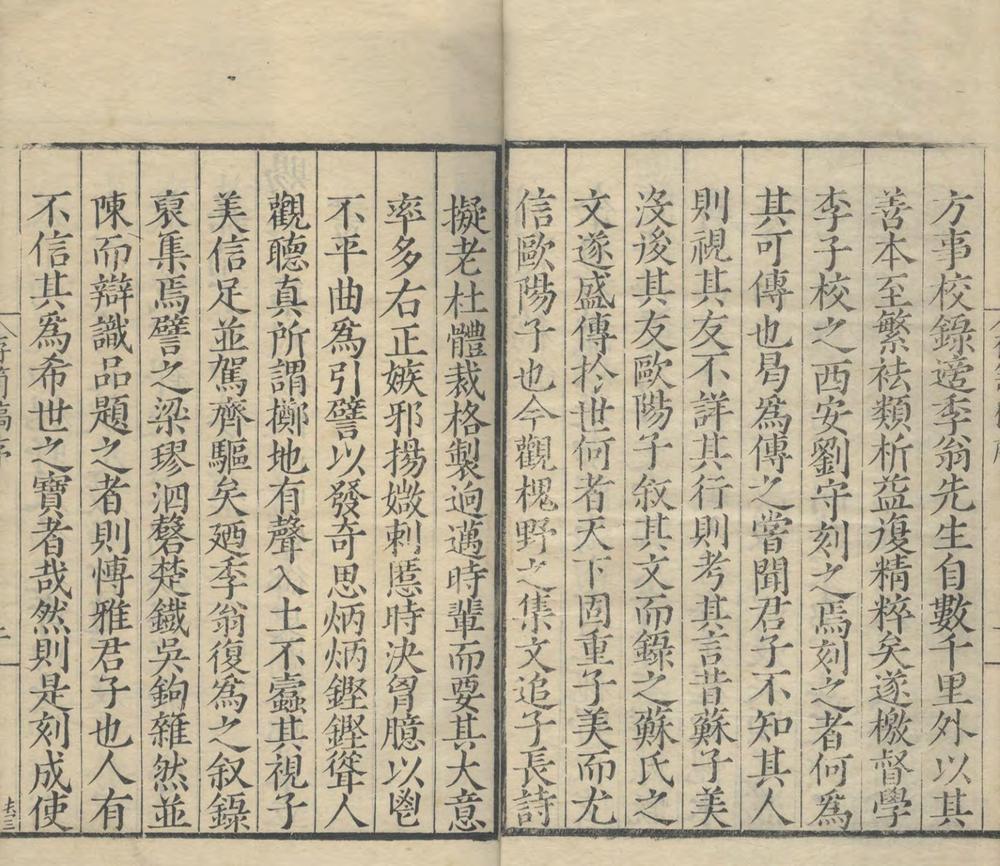 方事校錄適季翁先生自數千里外以其
善本至繁袪類析益復精粹矣遂檄督學
李子校之西安劉守刻之焉刻之者何爲
其可傳也曷爲傳之嘗聞君子不知其人
則視其友不詳其行則考其言昔蘇子美
沒後其友歐陽子敘其文而錄之蘇氏之
文遂盛傳於世何者天下固重子美而尤
信歐陽子也今觀槐野之集文追子長詩
擬老杜體裁格製逈邁時輩而要其大意
率多右正嫉邪揚媺刺慝時決胷臆以鬯
不平曲爲引譬以發奇思炳炳鏗鏗聳人
觀聽眞所謂擲地有聲入土不蠹其視子
美信足並駕齊驅矣廼季翁復爲之叙錄
裒集焉譬之梁璆泗磬楚鐵吳鉤雜然並
陳而辯識品題之者則博雅君子也人有
不信其爲希世之寶者哉然則是刻成使
存笥稿序